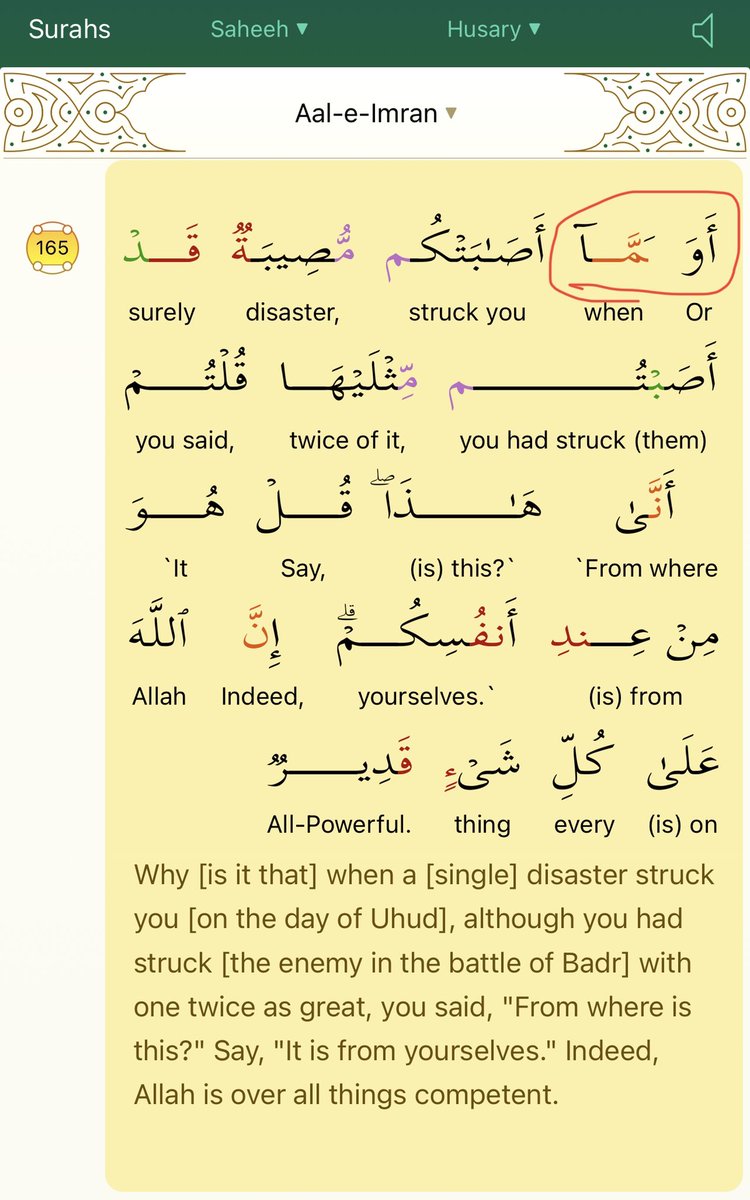 Surahs Saheeh ▼ Husary ▼
Aal-e-Imran ▼
165
أَوَ َمَّآ أَصَـٰبَتۡكُم مُّصِيبَةٌ قَدۡ
surely disaster, struck you when Or
أَصَبۡتُم مِّثۡلَيۡهَا قُلۡتُمۡ
you said, twice of it, you had struck (them)
أَنَّىٰ هَـٰذَاۖ قُلۡ هُوَ
`It Say, (is) this?` `From where
مِنۡ عِندِ أَنفُسِكُمۡۗ إِنَّ ٱللَّهَ
Allah Indeed, yourselves.` (is) from
عَلَىٰ كُلِّ شَىۡءٍ قَدِيرٌ
All-Powerful. thing every (is) on
Why [is it that] when a [single] disaster struck
you [on the day of Uhud], although you had
struck [the enemy in the battle of Badr] with
one twice as great, you said, "From where is
this?" Say, "It is from yourselves." Indeed,
Allah is over all things competent.